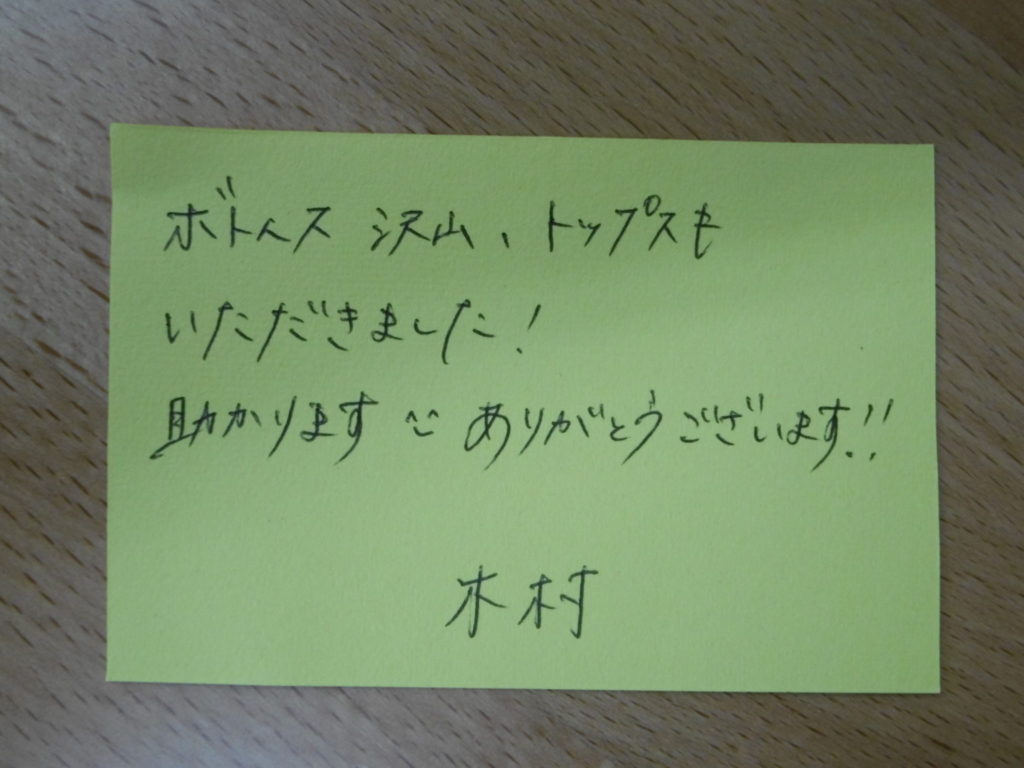 ボトムス 沢山、トップスも
いただきました!
助かります ありがとうございます!!
木村